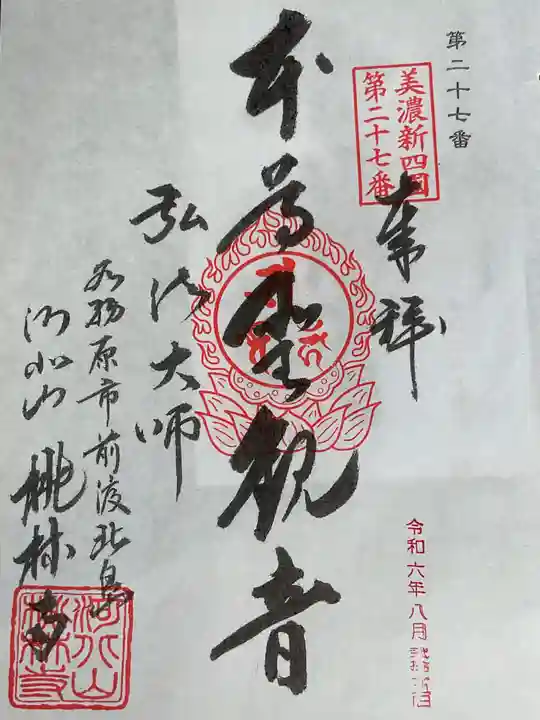 第二十七番
美濃新四国
第二十七番
奉拝
本尊聖観音
弘法大師
各務原市前渡北島
河北山 桃林寺
河北山
桃林寺
令和六年八月